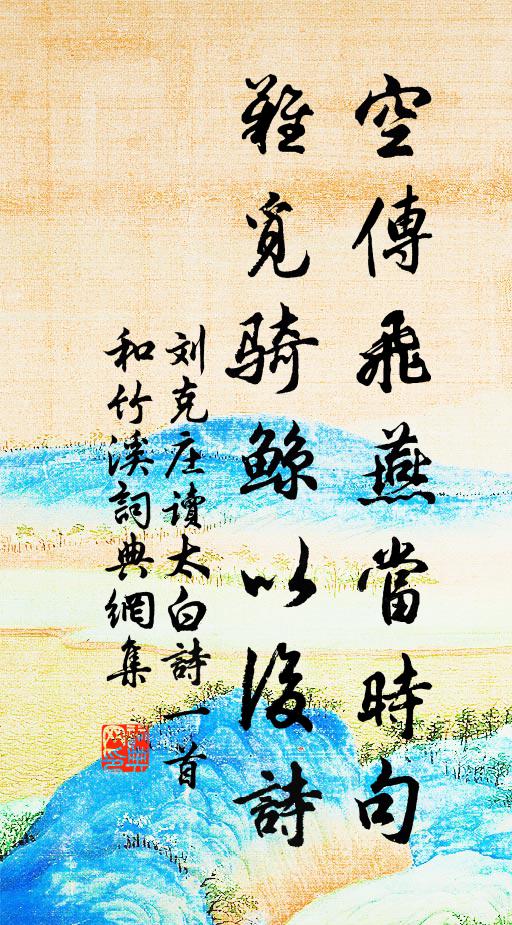 空傳飛燕當時句
難覓騎鯨以後詩
刘克庄讀太白詩一首
和竹溪詞典網集